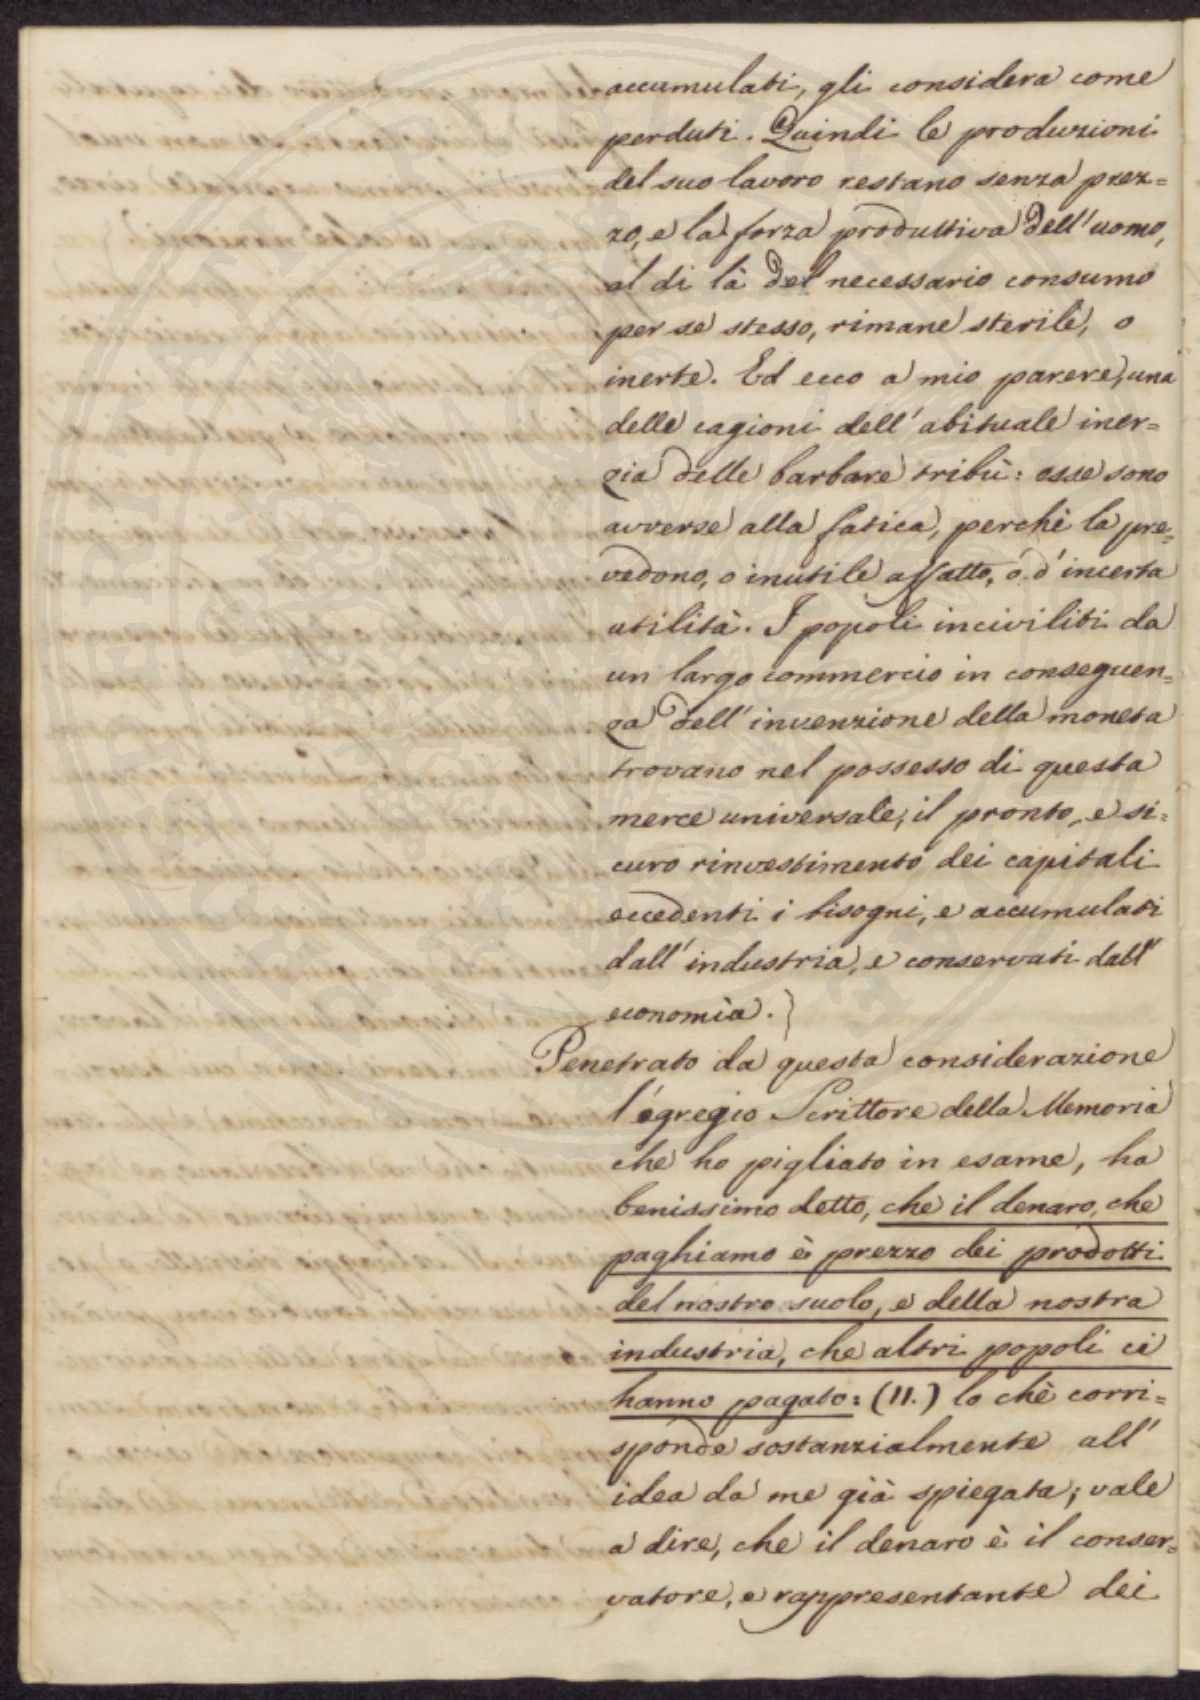 accumulati, gli considera come
perduti. Quindi le produzioni
del suo lavoro restano senza prez=
zo, e la forza produttiva dell'uomo,
al di là del necessario consumo
per se stesso, rimane sterile, o
inerte. Ed ecco a mio parere, una
delle cagioni dell'abituale iner=
zia delle barbare tribù: esse sono
avverse alla fatica, perchè la pre=
vedono, o inutile affatto, o d'incerta
utilità. I popoli inciviliti da
un largo commercio in conseguen=
za dell'invenzione della moneta
trovano nel possesso di questa
merce universale, il pronto, e si=
curo rinvestimento dei capitali
eccedenti i bisogni, e accumulati
dall'industria, e conservati dall'
economia. }
Penetrato da questa considerazione
l'egregio Scrittore della Memoria
che ho pigliato in esame, ha
benissimo detto, che il denaro, che
paghiamo è prezzo dei prodotti
del nostro suolo, e della nostra
industria, che altri popoli ci
hanno pagato: (11.) lo chè corri=
sponde sostanzialmente all'
idea da me già spiegata; vale
a dire, che il denaro è il conser=
vatore, e rappresentante dei